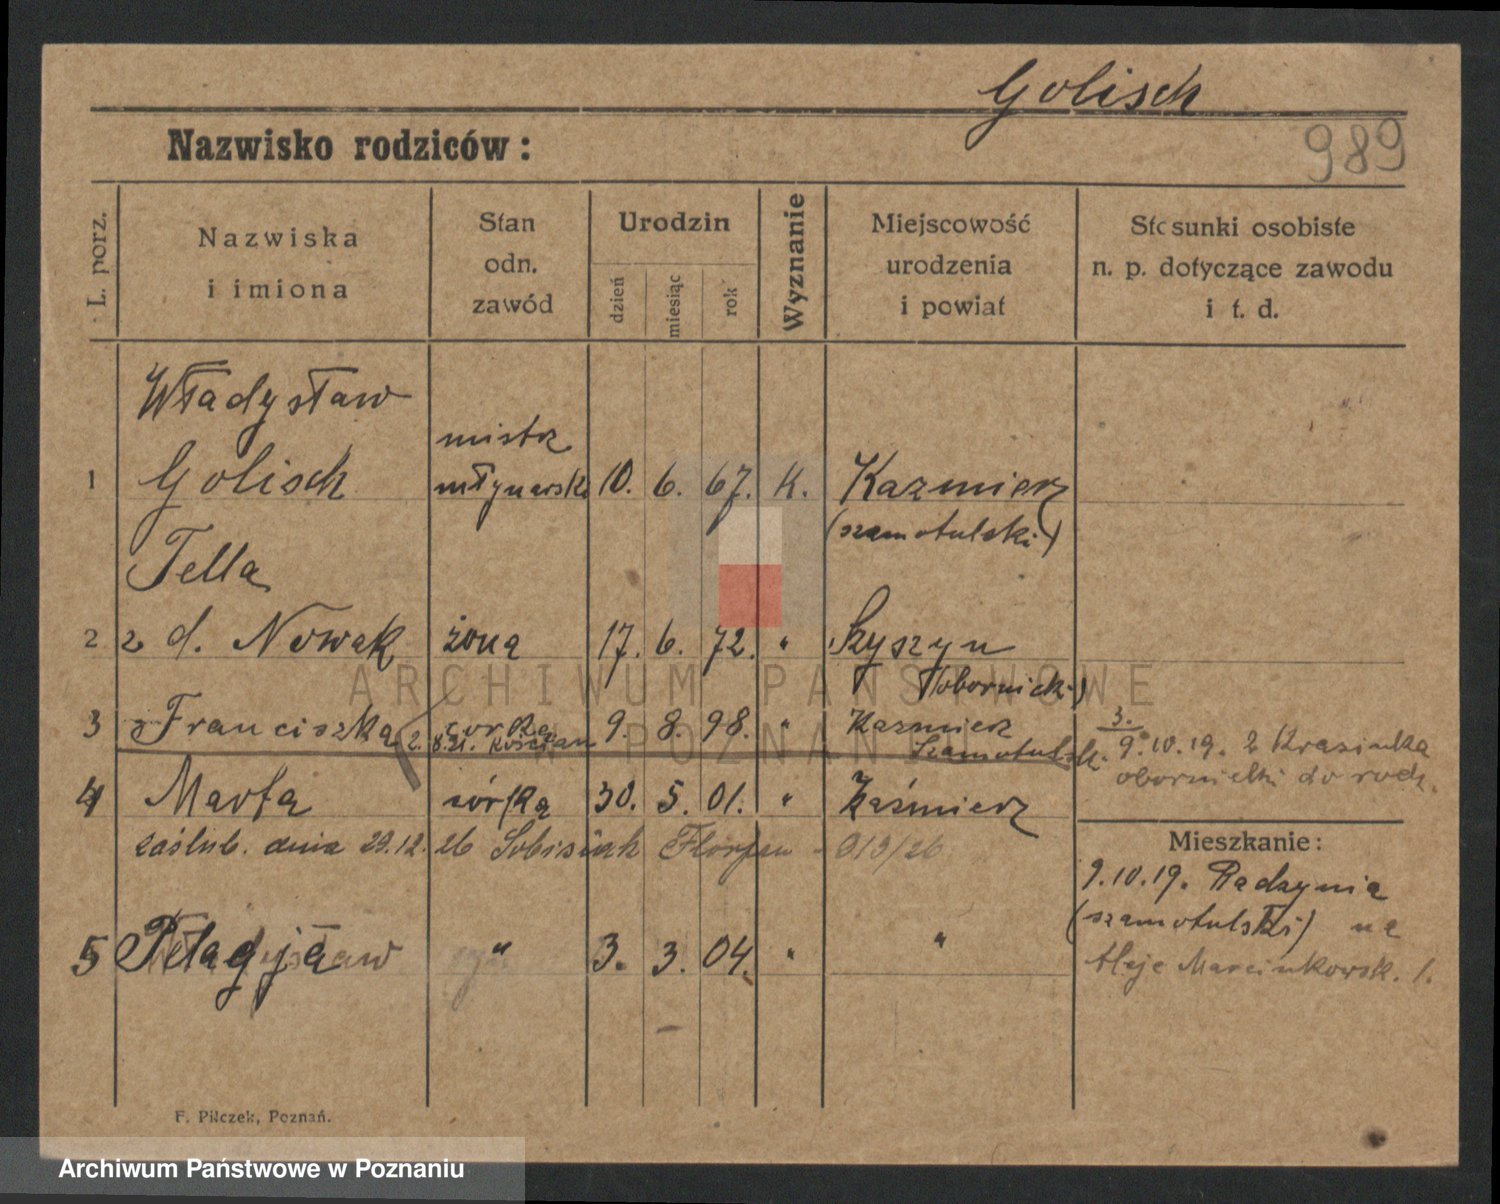 Golisch
989
Nazwisko rodziców:
L. porz.
Nazwiska
i imiona
Stan
odn.
zawód
Urodzin
dzień
miesiąc
rok
Wyznanie
Miejscowość
urodzenia
i powiat
Stosunki osobiste
n. p. dotyczące zawodu
i t. d.
Władysław
mistrz
1 Golisch młynarski 10. 6. 67. K. Kazmierz
(szamotulski)
Tella
2 z d. Nowak żona 17. 6. 72. " Szyszyn
(obornicki)
3 Franciszka córka 9. 8. 98. " Kazmierz
2. 8.21. Kościan Szamotulski
3.
9.10.19. z Krasinka
obornicki do rodz.
4 Marta córka 30. 5. 01. " Kaźmierz
zaślub. dnia 29.12.26 Sobisiak Florjan - 913/26
5 Pelagja " 3. 3. 04. " "
Mieszkanie:
9.10.19. Radzynia
(szamotulski) na
Aleje Marcinkowsk. 1.
F. Pilczek, Poznań.
ARCHIWUM PAŃSTWOWE
W POZNANIU
Archiwum Państwowe w Poznaniu